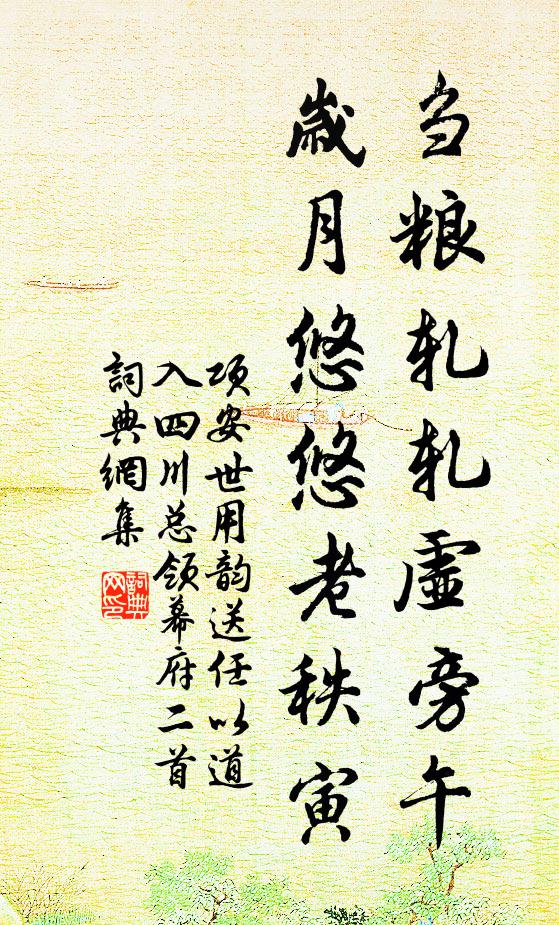 刍粮轧轧虛旁午
歲月悠悠老秩寅
项安世用韵送任以道
入四川总领幕府二首
詞典網集
詞典网印